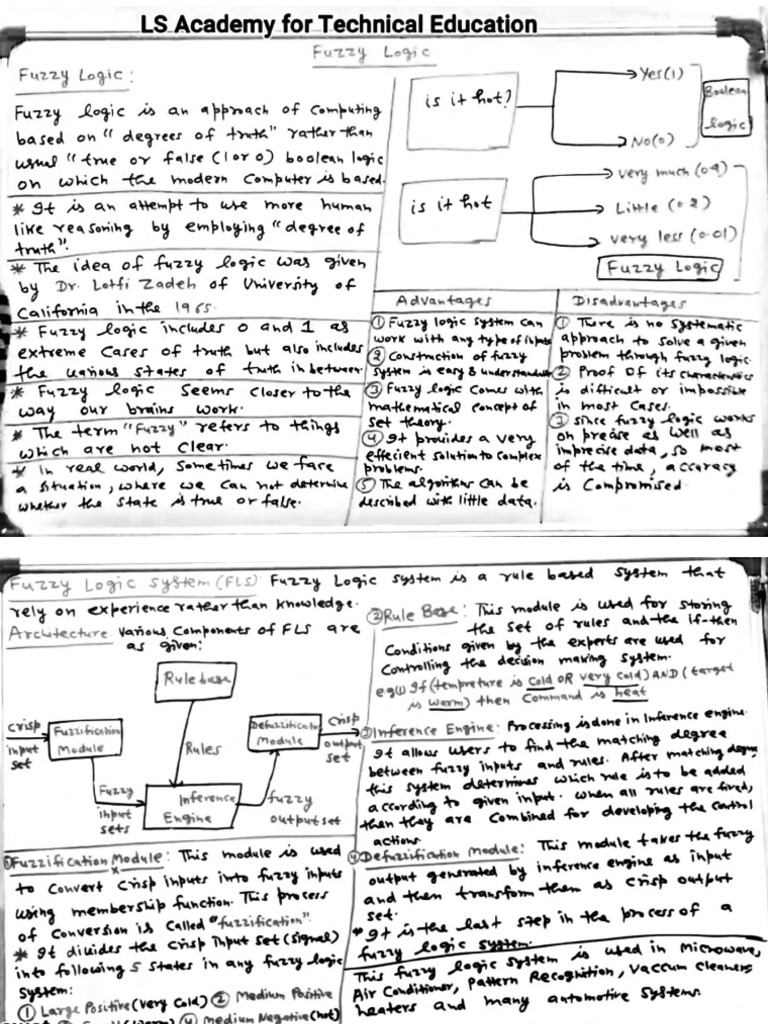 LS Academy for Technical Education
Fuzzy Logic
Fuzzy Logic:
Fuzzy logic is an approach of computing
based on "degrees of truth" rather than
usual "true or false (1 or 0) boolean logic
on which the modern computer is based.
* It is an attempt to use more human
like reasoning by employing "degree of
truth".
* The idea of fuzzy logic was given
by Dr. Lotfi Zadeh of University of
California in the 1965.
* Fuzzy logic includes 0 and 1 as
extreme cases of truth but also includes
the various states of truth in between.
* Fuzzy logic seems closer to the
way our brains work.
* The term "Fuzzy" refers to things
which are not clear.
* In real world, sometimes we face
a situation, where we can not determine
whether the state is true or false.
is it hot?
Yes(1)
No(0)
Boolean
logic
is it hot
very much (0.9)
Little (0.2)
very less (0.01)
Fuzzy Logic
Advantages
① Fuzzy logic system can
work with any type of inputs
② Construction of fuzzy
system is easy & understandable
③ Fuzzy logic comes with
mathematical concept of
set theory.
④ It provides a very
effecient solution to complex
problems.
⑤ The algorithms can be
described with little data.
Disadvantages
① There is no systematic
approach to solve a given
problem through fuzzy logic.
② Proof Of its characteristics
is difficult or impossible
in most cases.
③ since fuzzy logic works
on precise as well as
imprecise data, so most
of the time, accuracy
is Compromised
Fuzzy Logic System (FLS): Fuzzy Logic system is a rule based system that
rely on experience rather than knowledge.
Architecture Various Components of FLS are
as given:
Rule base
crisp
input
set
Fuzzification
Module
Rules
Defuzzification
Module
Crisp
output
set
Fuzzy
input
sets
Inference
Engine
fuzzy
output set
① Fuzzification Module: This module is used
to convert crisp inputs into fuzzy inputs
using membership function. This process
of conversion is called "fuzzification".
* It divides the crisp input set (signal)
into following 5 states in any fuzzy logic
system:
① Large Positive (very cold) ② Medium Positive
④ Medium Negative (hot)
② Rule Base: This module is used for storing
the set of rules and the if-then
Conditions given by the experts are used for
controlling the decision making system.
e.g(1) If (tempreture is cold OR very cold) AND (target
is warm) then Command is heat
③ Inference Engine: Processing is done in Inference engine.
It allows users to find the matching degree
between fuzzy inputs and rules. After matching degree
this system determines which rule is to be added
according to given input. when all rules are fired,
then they are combined for developing the control
actions.
④ Defuzzification Module: This module takes the fuzzy
output generated by inference engine as input
and then transform them as crisp output
set.
* It is the last step in the process of a
fuzzy logic system.
This fuzzy logic system is used in Microwave,
Air Conditioner, Pattern Recognition, Vaccum cleaners,
heaters and many automotive systems.